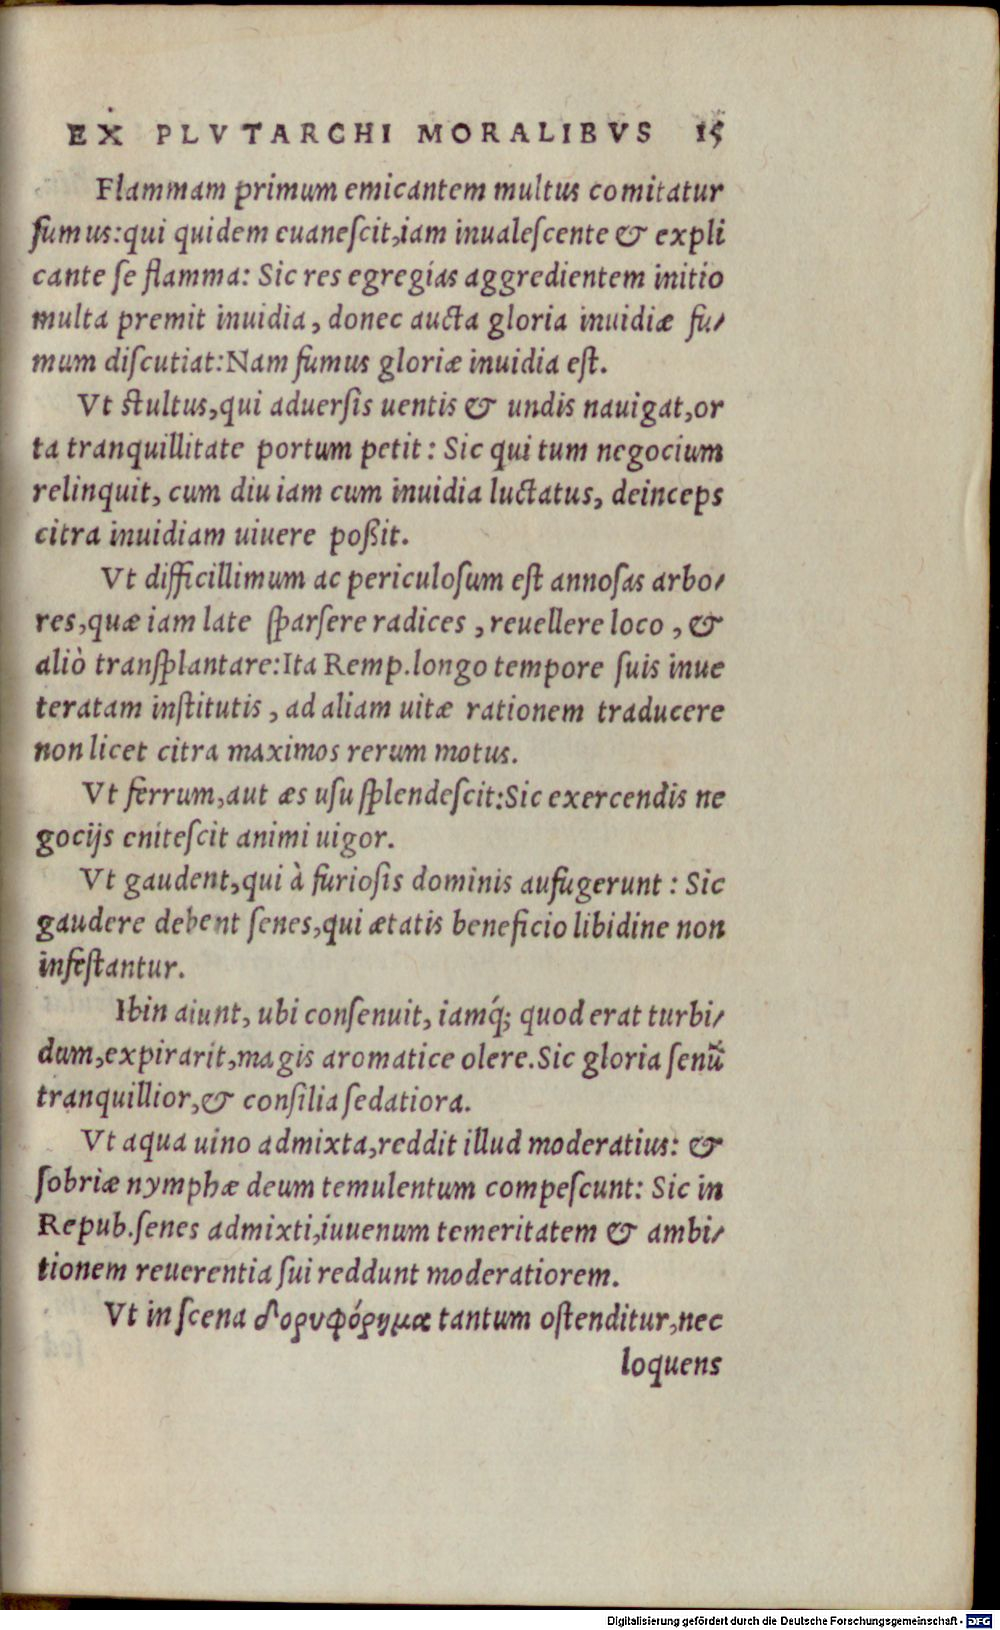 EX PLVTARCHI MORALIBVS 15
Flammam primum emicantem multus comitatur
fumus:qui quidem euanescit,iam inualescente & expli
cante se flamma: Sic res egregias aggredientem initio
multa premit inuidia, donec aucta gloria inuidiæ fu-
mum discutiat:Nam fumus gloriæ inuidia est.
Vt stultus,qui aduersis uentis & undis nauigat,or
ta tranquillitate portum petit: Sic qui tum negocium
relinquit, cum diu iam cum inuidia luctatus, deinceps
citra inuidiam uiuere poßit.
Vt difficillimum ac periculosum est annosas arbo-
res,quæ iam late sparsere radices, reuellere loco, &
aliò transplantare:Ita Remp.longo tempore suis inue
teratam institutis, ad aliam uitæ rationem traducere
non licet citra maximos rerum motus.
Vt ferrum,aut æs usu splendescit:Sic exercendis ne
gocijs enitescit animi uigor.
Vt gaudent,qui à furiosis dominis aufugerunt: Sic
gaudere debent senes,qui ætatis beneficio libidine non
infestantur.
Ibin aiunt, ubi consenuit, iamq́; quod erat turbi-
dum,expirarit,magis aromatice olere.Sic gloria senũ
tranquillior,& consilia sedatiora.
Vt aqua uino admixta,reddit illud moderatius: &
sobriæ nymphæ deum temulentum compescunt: Sic in
Repub.senes admixti,iuuenum temeritatem & ambi-
tionem reuerentia sui reddunt moderatiorem.
Vt in scena δορυφόρημα tantum ostenditur,nec
loquens
Digitalisierung gefördert durch die Deutsche Forschungsgemeinschaft - DFG